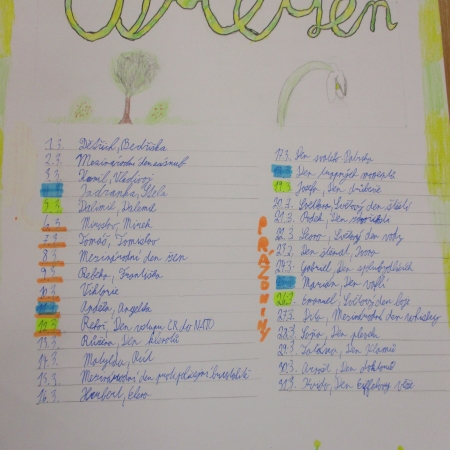 Březen
1.3. Bedřich, Bedřiška
2.3. Mezinárodní den
3.3. Kamil,
4.3. Stela
5.3.
6.3. Miroslav, Mirek
7.3. Tomáš, Tomislav
8.3. Mezinárodní den žen
9.3. Františka
10.3. Viktorie
11.3. Anděla, Angelika
12.3. Řehoř, Den vstupu ČR do NATO
13.3. Růžena, Den
14.3. Matylda,
15.3. Mezinárodní den proti policejní brutalitě
16.3. Herbert, Elena
PRÁZDNINY
17.3. Den svatého Patrika
18.3. Den
19.3. Josef, Den
20.3. Světlana, Světový den štěstí
21.3. Radek, Den
22.3. Leona, Světový den vody
23.3. Den
24.3. Gabriel, Den
25.3. Marián, Den vaflí
26.3. Emanuel, Světový den
27.3. Dita, Mezinárodní den whiskey
28.3. Soňa, Den
29.3. Taťána, Den
30.3. Arnošt, Den doktorů
31.3. Kvido, Den Eiffelovy věže